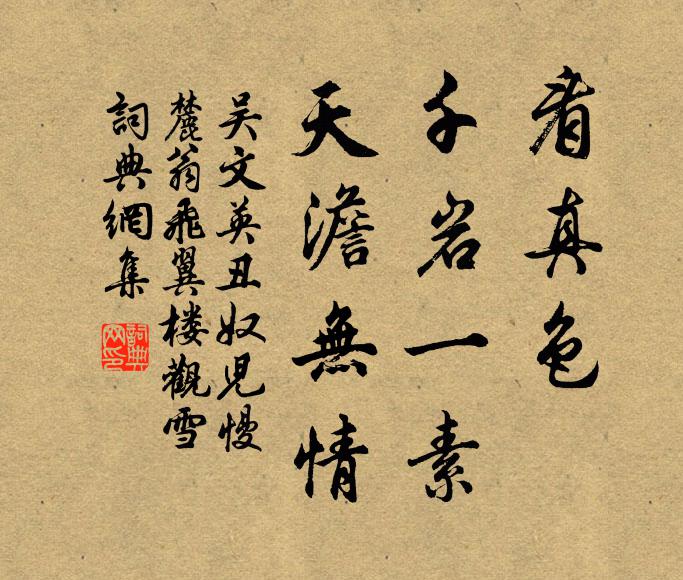 看真色
千岩一素
天澹無情
吴文英丑奴児慢
麓翁飛翼楼觀雪
詞典網集
詞典網印